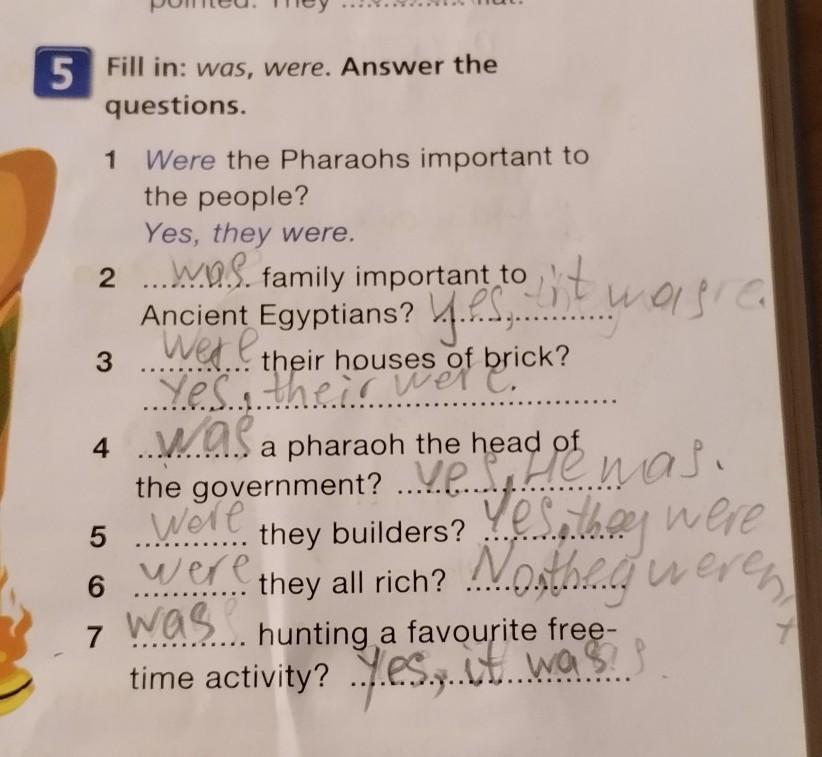 pointed. They .............. hat.
5 Fill in: was, were. Answer the
questions.
1 Were the Pharaohs important to
the people?
Yes, they were.
2 was family important to
Ancient Egyptians? yes, it was
3 were their houses of brick?
Yes, their were.
4 was a pharaoh the head of
the government? yes, He was.
5 were they builders? Yes, they were
6 were they all rich? No, they weren't
7 was hunting a favourite free-
time activity? Yes, it was